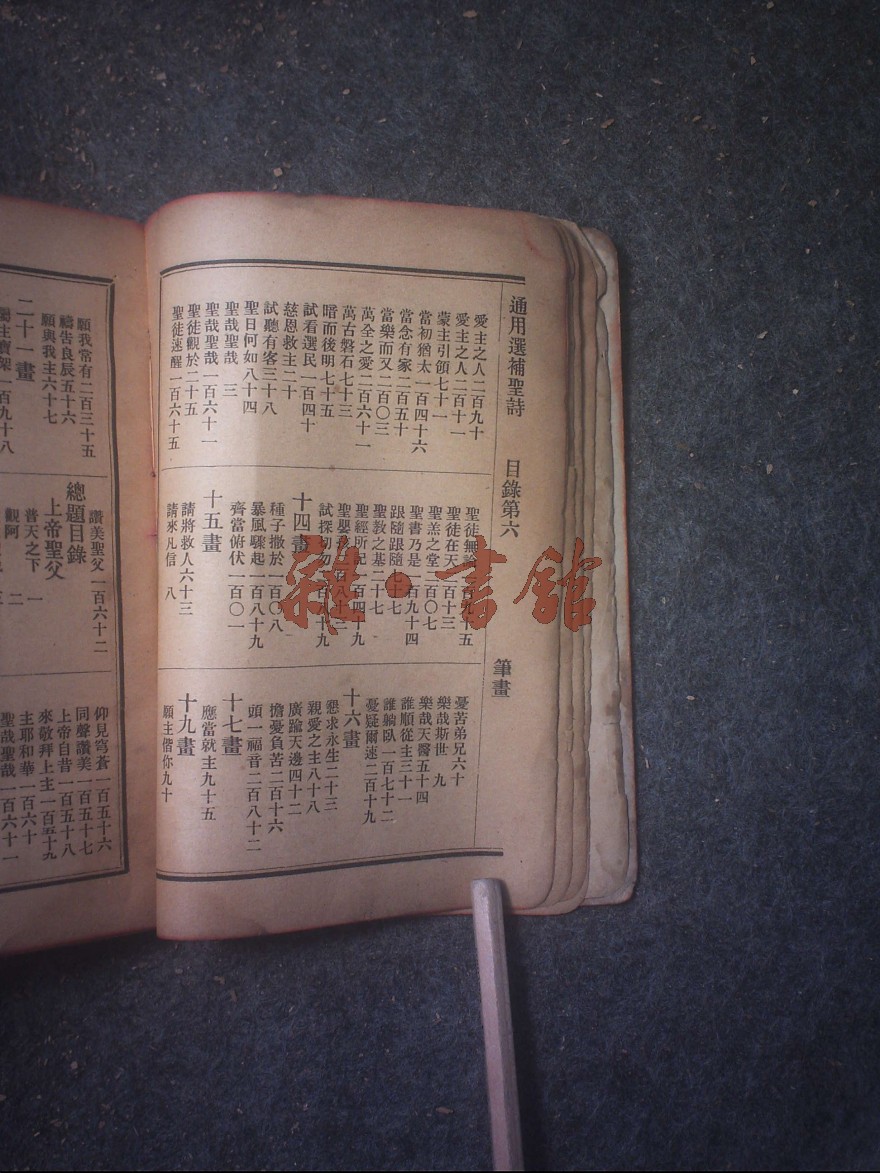 通用選補聖詩 目錄第六 筆畫
愛主之人二百九十
愛主之人二百十一
蒙主引領七十一
當初猶太一百四十六
當念有家二百五十
當樂而又二百〇三
萬全之愛二百六十一
萬古磐石七十三
暗而後明七十五
試看選民一百四十
慈恩救主二十
試聽有客三十八
聖日何如八十四
聖哉聖哉 三
聖哉聖哉一百六十一
聖徒觀於二十五
聖徒速醒一百六十五
聖徒無論一百九十五
聖徒在天二百十三
聖羔之堂二百〇七
聖書乃是一百九十四
跟隨跟隨七十七
聖教之基二十七
聖經所記一百四十九
聖嬰孩 百八十二
試探切勿 百八十九
十四畫
種子撒於一百〇八
暴風驟起一百八十九
齊當俯伏一百〇一
十五畫
請將救人六十三
請來凡信 八
憂苦弟兄六十
樂哉斯世 九
樂哉天醫五十四
誰順從主三十一
誰躺臥一百七十二
憂疑爾速二百十九
十六畫
懇求永生二十三
親愛之主八十八
廣踰天邊四十二
擔憂負苦二百十六
頭一福音二百八十二
十七畫
應當就主九十五
十九畫
願主偕你九十
願我常有二百三十五
禱告良辰五十六
願與我主六十七
二十一畫
主寶架一百九十八
讚美聖父一百六十二
總題目錄
上帝聖父
普天之下 一
觀阿 二
仰見穹蒼一百五十六
同聲讚美一百五十七
上帝自昔一百五十八
來敬拜上主一百五十九
主耶和華一百六十
聖哉聖哉一百六十一
雜·書館